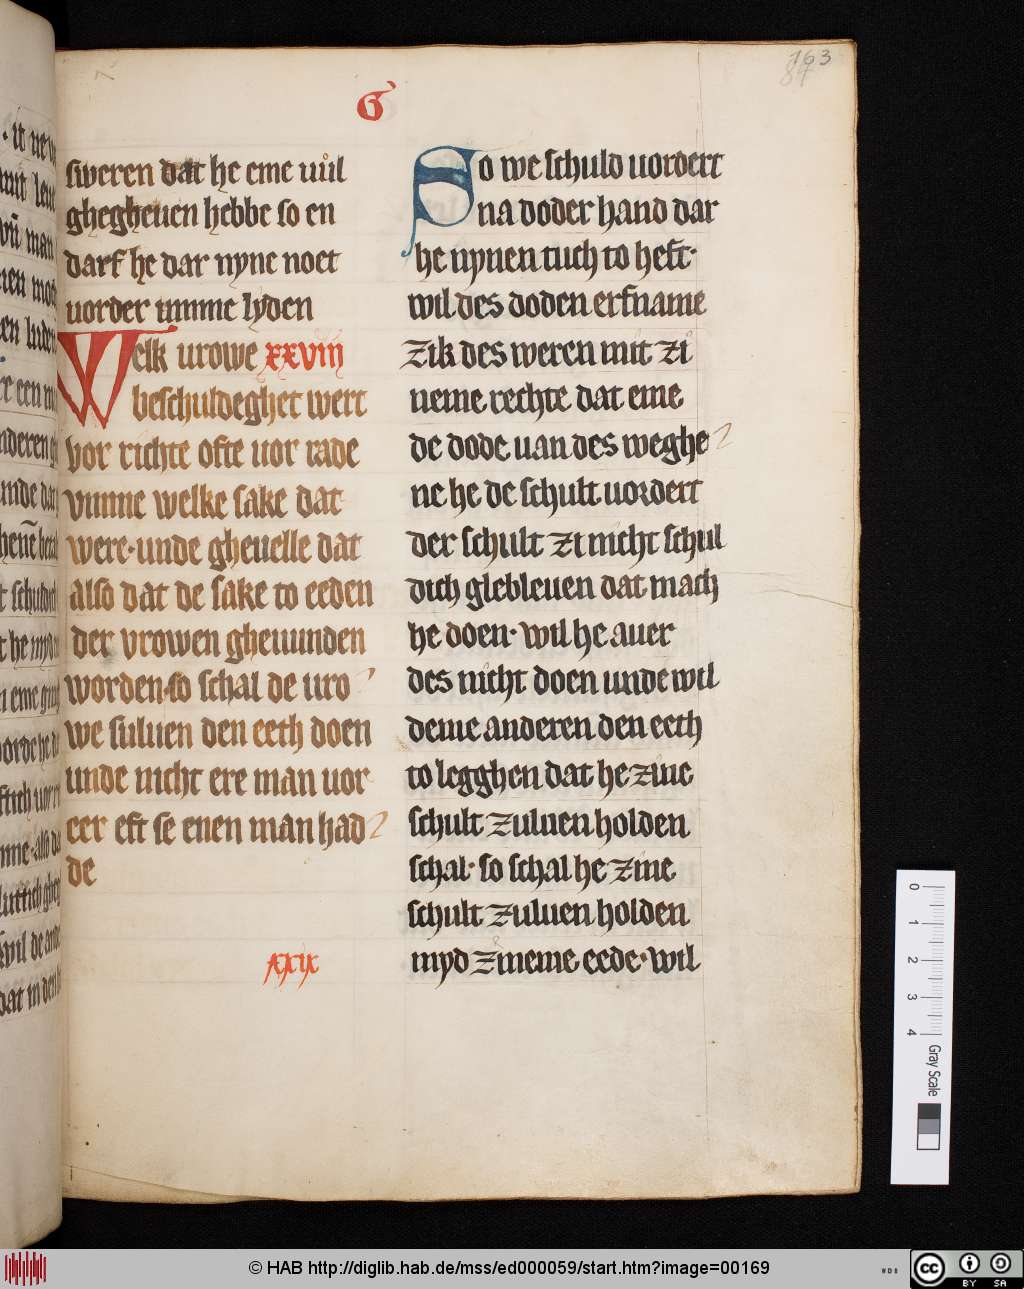 163
87
G
sweren dat he eme uůl
ghegheuen hebbe so en
darf he dar nyne noet
uorder umme lyden
Welk urowe xxviii
beschuldeghet wert
vor richte ofte uor rade
vmme welke sake dat
were·unde gheuelle dat
also dat de sake to eeden
der vrowen gheuunden
worden·so schal de uro
we suluen den eeth doen
unde nicht ere man uor
eer eft se enen man had
de
xxix
So we schuld uordert
na doder hand dar
he nynen tuch to heft·
wil des doden erfname
zik des weren mit zi
neme rechte dat eme
de dode uan des weghe
ne he de schult uordert
der schult zi nicht schul
dich glebleuen dat mach
he doen· wil he auer
des nicht doen unde wil
deme anderen den eeth
to legghen dat he zine
schult zuluen holden
schal· so schal he zine
schult zuluen holden
myd zineme eede·wil
0 1 2 3 4
Gray Scale
© HAB http://diglib.hab.de/mss/ed000059/start.htm?image=00169
WDB
cc BY SA